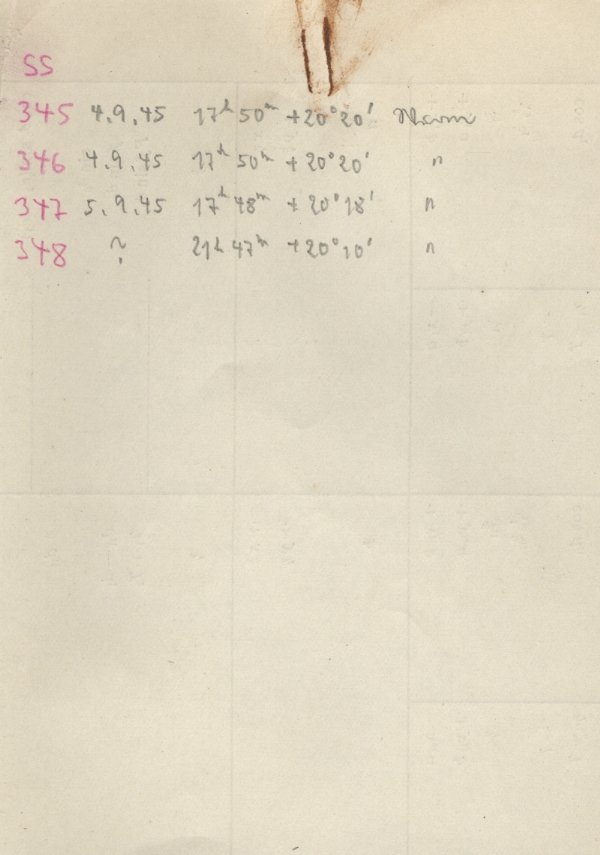 SS
345 4.9.45 17h 50m +20°20'
346 4.9.45 17h 50m +20°20' "
347 5.9.45 17h 48m +20°18' "
348 ? 21h 47m +20°10' "